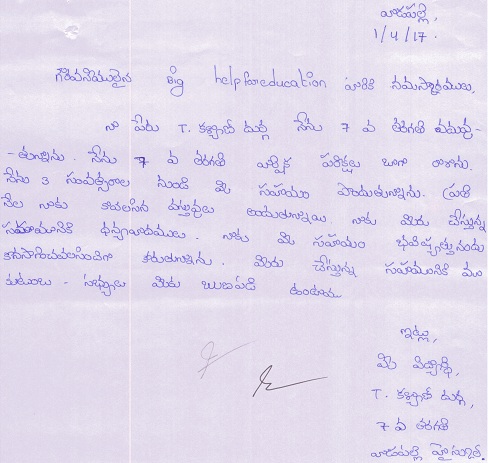 వాడపల్లి,
1/4/17.
గౌరవనీయులైన Big help for education వారికి నమస్కారములు,
నా పేరు T. కళ్యాణి దుర్గ నేను 7 వ తరగతి చదువు-
-తున్నాను. నేను 7 వ తరగతి వార్షిక పరీక్షలు బాగా రాశాను.
నేను 3 సంవత్సరాల నుండి మీ సహాయం పొందుతున్నాను. ప్రతి
నెల నాకు కావలసిన వస్తువులు అందుతున్నాయి. నాకు మీరు చేస్తున్న
సహాయానికి ధన్యవాదములు. నాకు మీ సహాయం భవిష్యత్తునందు
కొనసాగించవలసిందిగా కోరుతున్నాను. మీరు చేస్తున్న సహాయానికి మా
కుటుంబ సభ్యులు మీకు ఋణపడి ఉంటాము
ఇట్లు,
మీ విద్యార్థి,
T. కళ్యాణి దుర్గ,
7 వ తరగతి
వాడపల్లి హైస్కూల్.